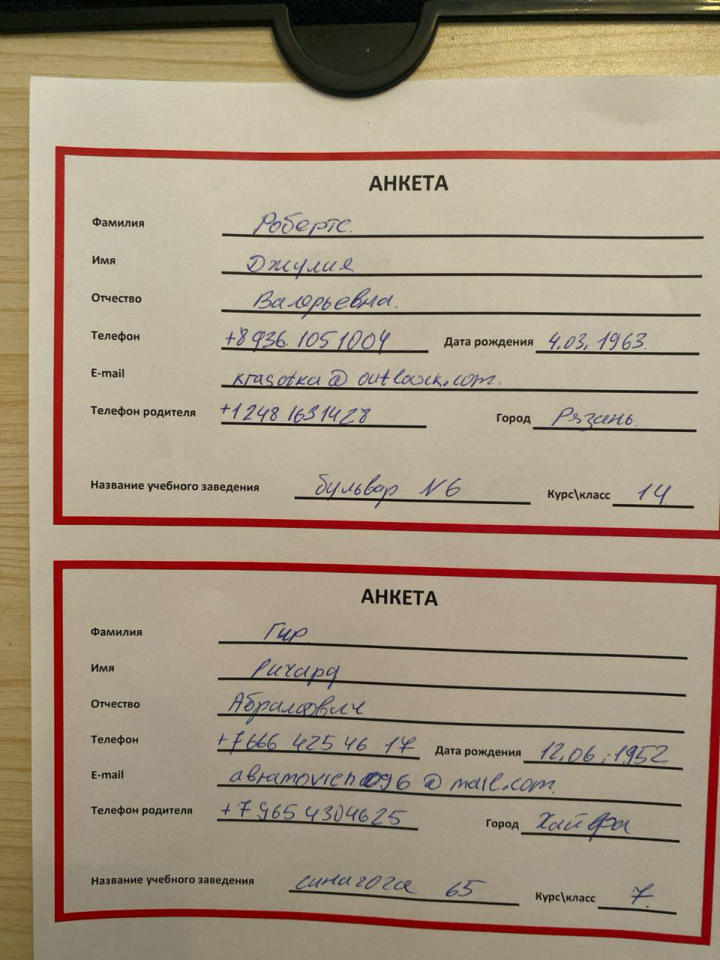 АНКЕТА
Фамилия Робертс.
Имя Джулия
Отчество Валерьевна.
Телефон +8936.1051004 Дата рождения 4.03.1963.
E-mail krasotka@outlook.com.
Телефон родителя +12481631428 Город Рязань.
Название учебного заведения бульвар N6 Курс\класс 14
АНКЕТА
Фамилия Гир
Имя Ричард
Отчество Абрамович
Телефон +7666 425 46 17 Дата рождения 12.06.1952
E-mail abramovich096@mail.com.
Телефон родителя +7965 4304625 Город Хайфа
Название учебного заведения синагога 65 Курс\класс 7.